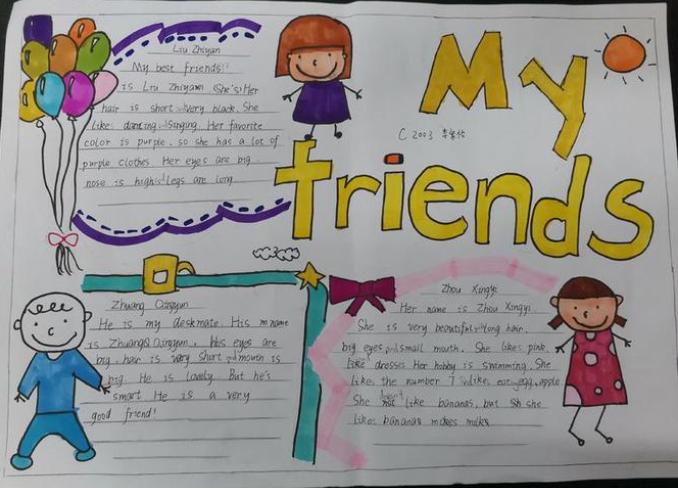 My
friends
C2003
Liu Zhiyan
My best friends!
is Liu Zhiyan. She's Her
hair is short. Very black. She
like dancing. Singing. Her favorite
color is purple. so she has a lot of
purple clothes. Her eyes are big.
nose is high. Legs are long
Zhuang Qingyun
He is my deskmate. His name
is Zhuang Qingyun. his eyes are
big. hair is very short mouth is
big. He is lovely. But he's
smart He is a very
good friend!
Zhou Xingyi
Her name is Zhou Xingyi.
She is very beautiful. long hair.
big eyes small mouth. She likes pink.
like dresses Her hobby is swimming. She
like the number 7 like eat egg apple
She doesn't like bananas, but she
likes bananas milk